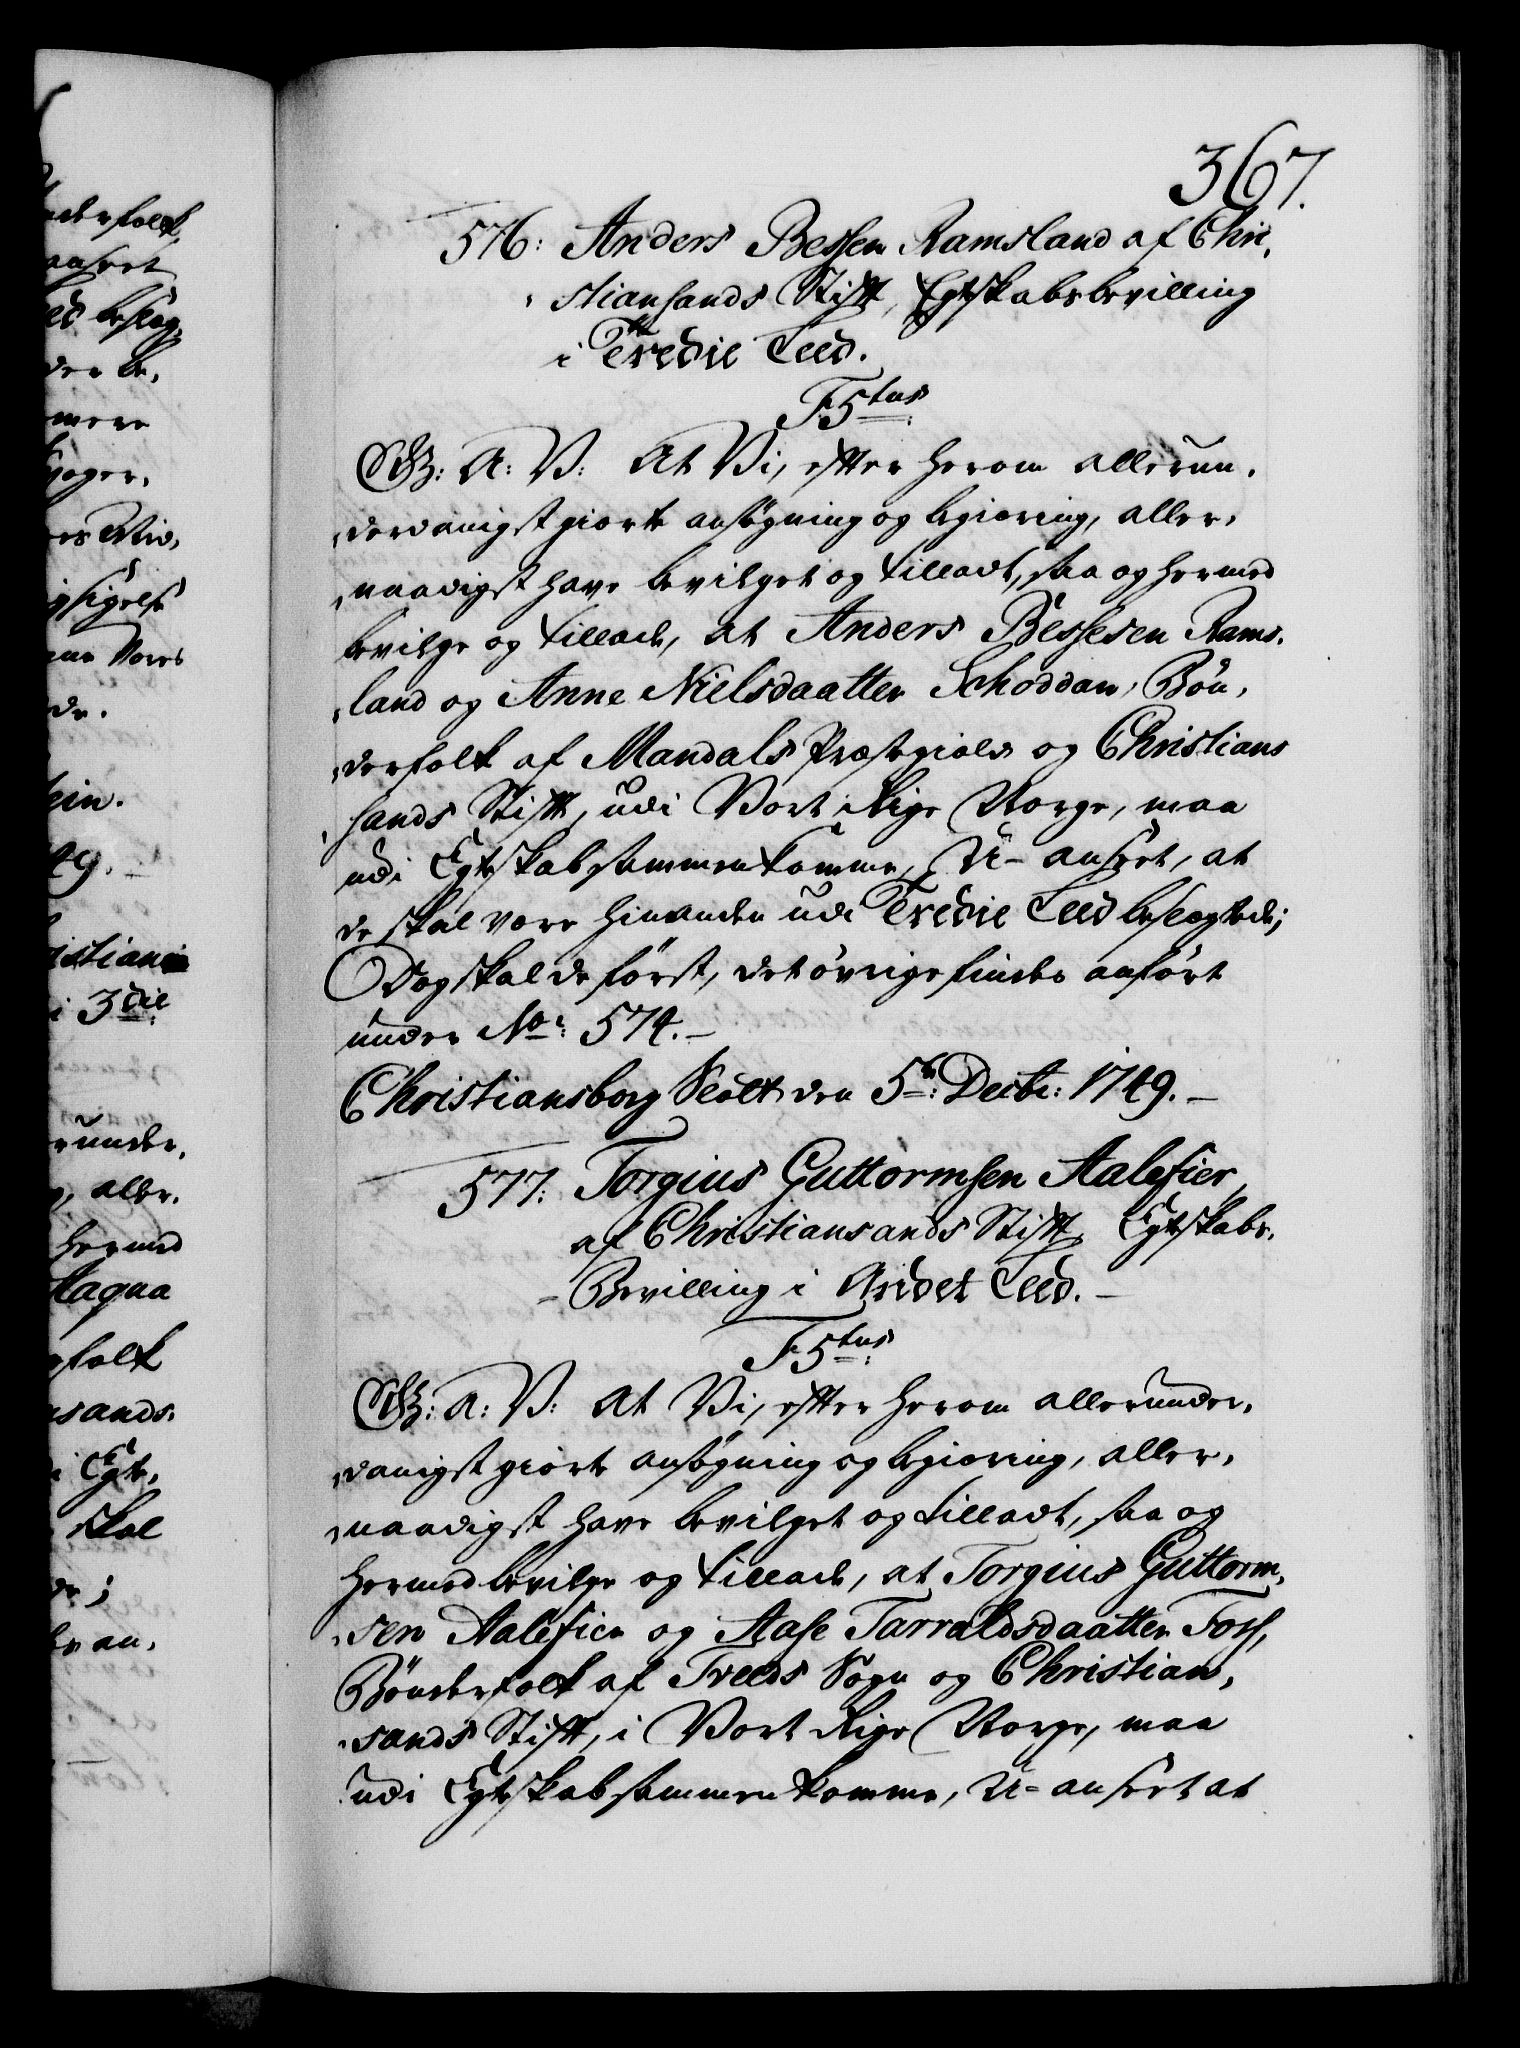 367.
576: Anders Bessen Ramsland af Chri,
stiansands Stift, Egtskabsbevilling
i Tredie Leed.
F5tus
G: A: V: At Vi, efter herom allerun,
derdanigst giorte ansøgning og begiering, aller,
naadigst have bevilget og tilladt, saa og hermed
bevilge og tillade, at Anders Bessesen Rams,
land og Anne Nielsdaatter Schoddan, Bøn,
derfolk af Mandals Præstegield og Christians
sands Stift, udi Vort Rige Norge, maa
udi Egteskab sammenkomme, U-anseet, at
de skal være hinanden udi Tredie Leed beslægtede;
Dog skal de først, det øvrige findes anført
under No: 574.-
Christiansborg Slott den 5te: Decbr: 1749.-
577: Torgius Guttormsen Aalefier,
af Christiansands Stift, Egtskabs,
Bevilling i Andet Leed.-
F5tus
G: A: V: At Vi, efter herom allerunder,
danigst giorte ansøgning og begiering, aller,
naadigst have bevilget og tilladt, saa og
hermed bevilge og tillade, at Torgius Guttorm,
sen Aalefier og Aase Tarraldsdaatter Foss,
Bønderfolk af Tveeds Sogn og Christian,
sands Stift, i Vort Rige Norge, maa
udi Egteskab sammenkomme, U-anseet at